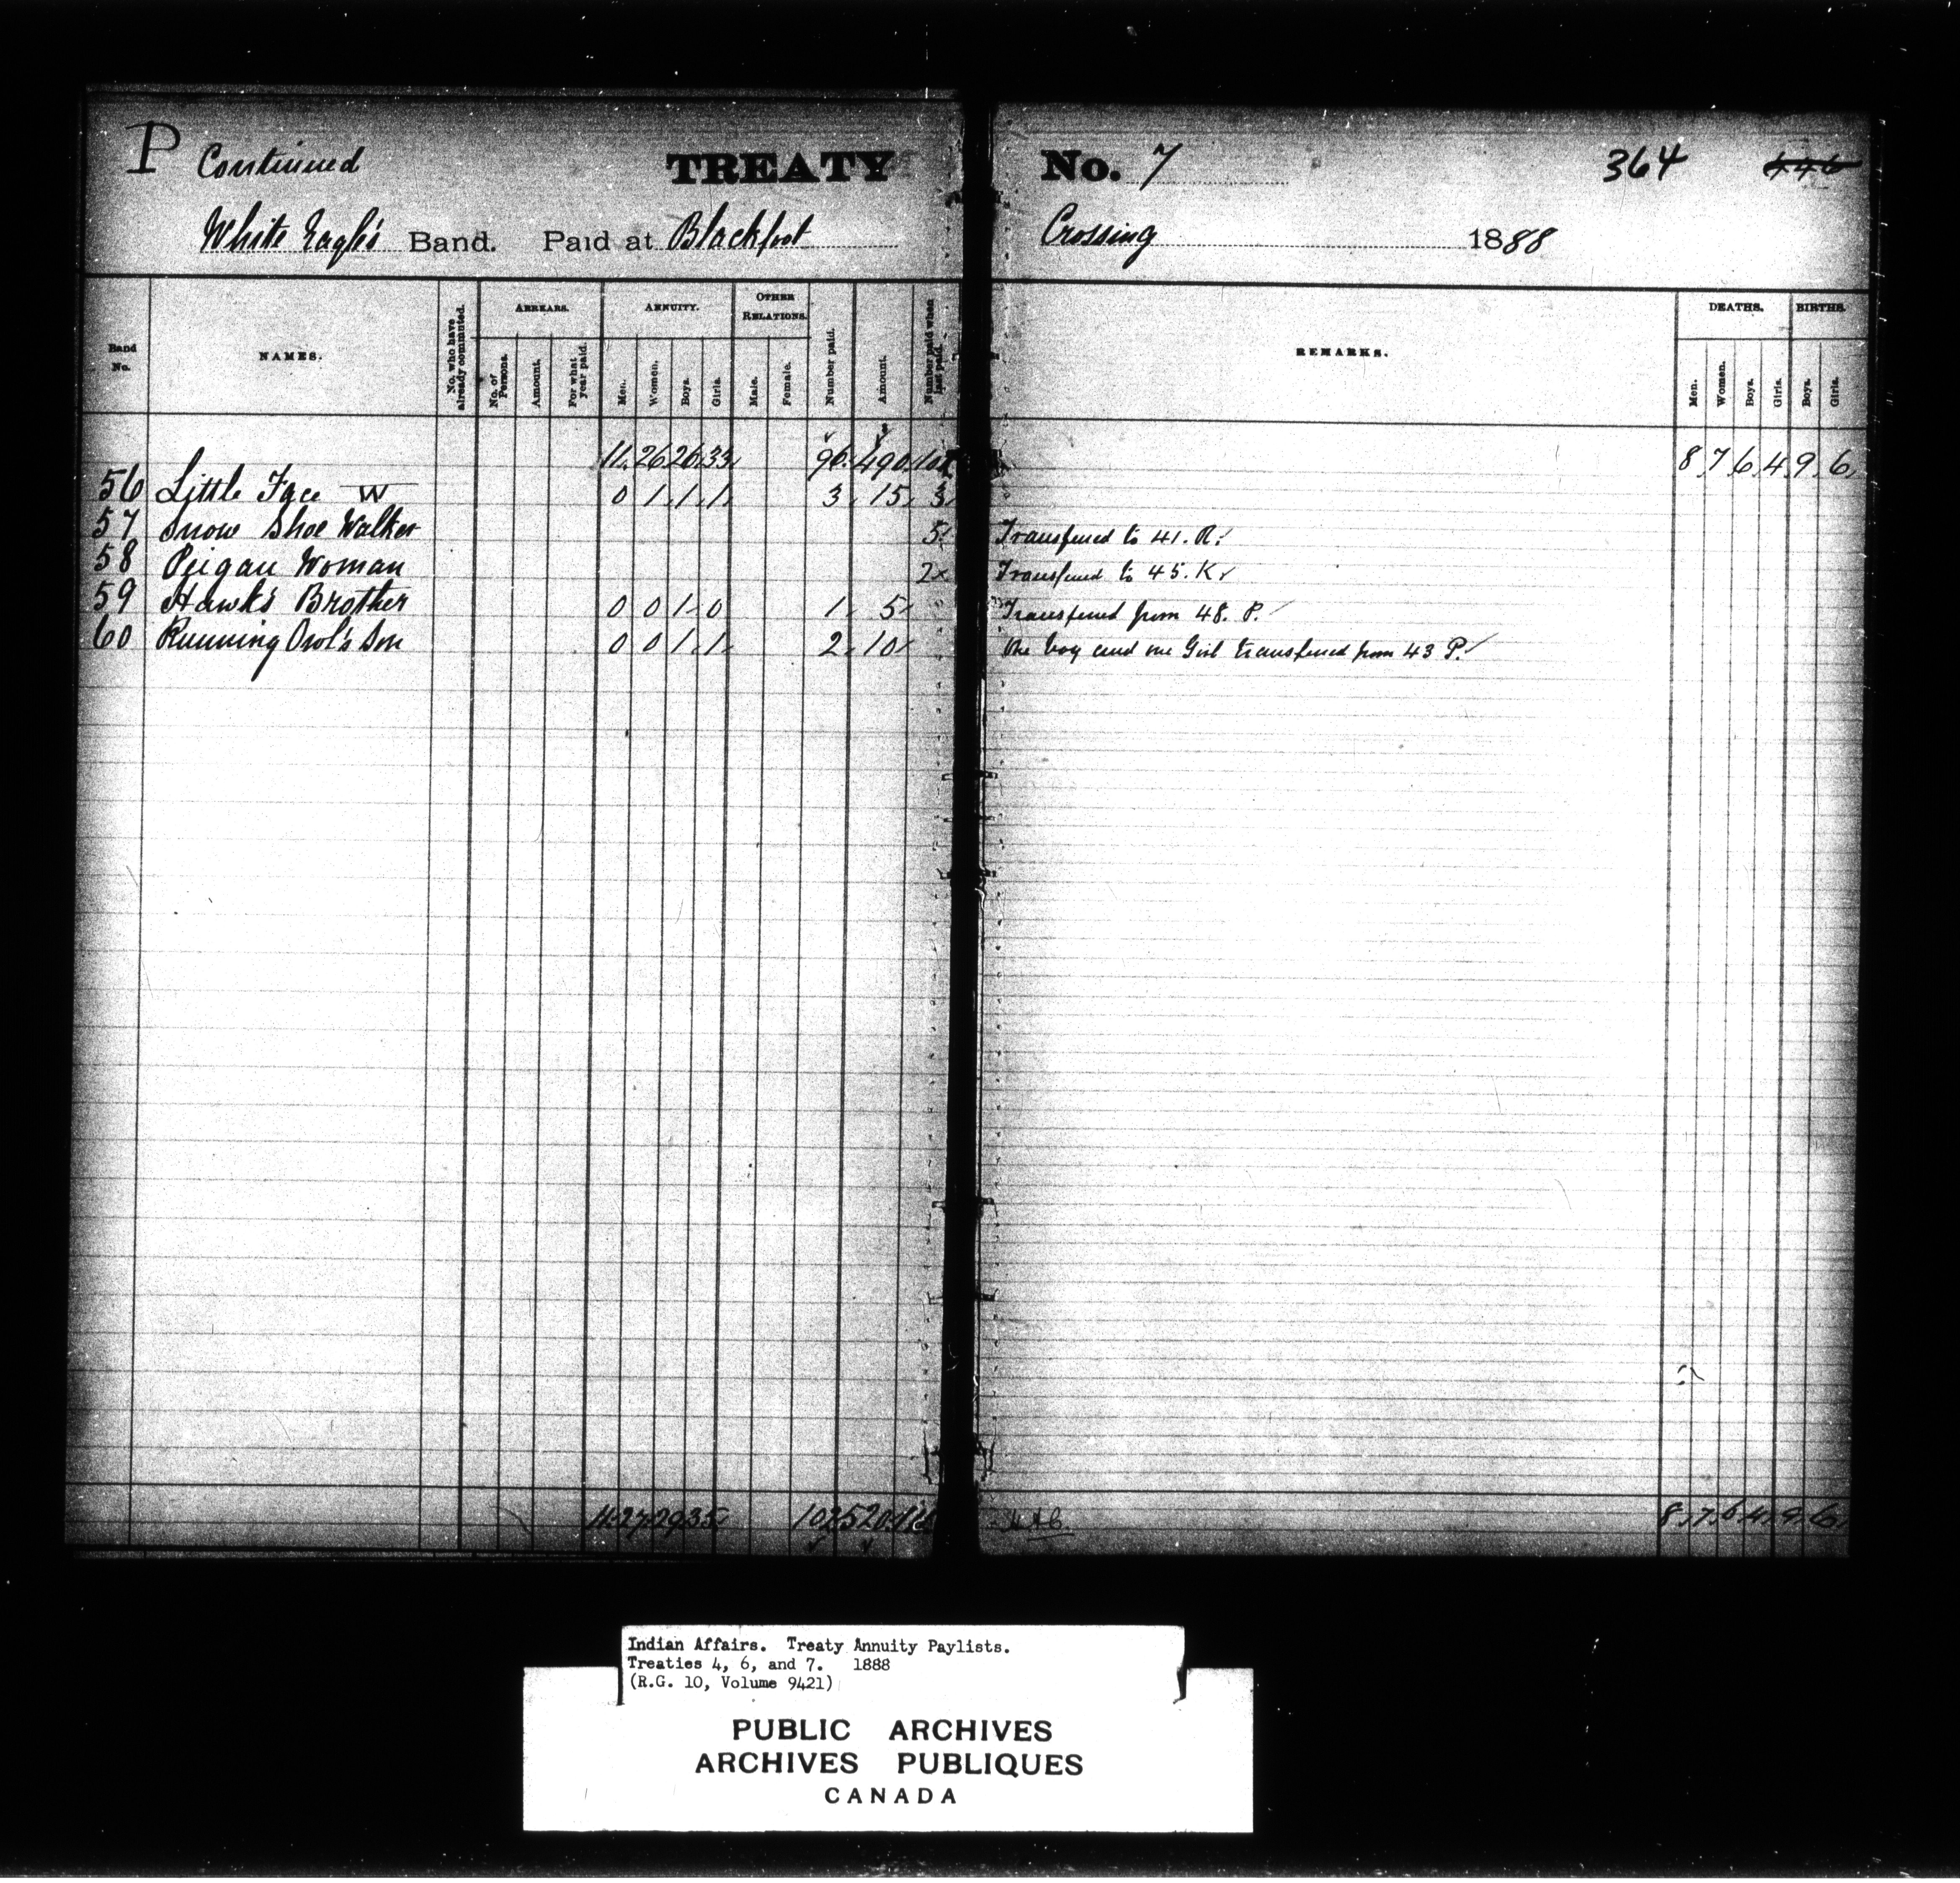 P Continued TREATY No. 7 364 446
White Eagle's Band. Paid at Blackfoot Crossing 1888
Band No. NAMES. No. who have already commuted. ARREARS. No. of Persons. Amount. For what year paid. ANNUITY. Men. Women. Boys. Girls. OTHER RELATIONS. Male. Female. Number paid. Amount. Number paid when last paid. REMARKS. DEATHS. Men. Women. Boys. Girls. BIRTHS. Boys. Girls.
11 26 26 33 96 490 8 7 6 4 9 6
56 Little Face W 0 1 1 1 3 15 3
57 Snow Shoe Walker 5 Transferred to 41. R.
58 Peigan Woman 2x Transferred to 45. K
59 Hawk's Brother 0 0 1 0 1 5 Transferred from 48. P.
60 Running Owl's Son 0 0 1 1 2 10 One boy and one Girl transferred from 43 P.
11 27 29 35 102 520 8 7 6 4 9 6
Indian Affairs. Treaty Annuity Paylists.
Treaties 4, 6, and 7. 1888
(R.G. 10, Volume 9421)
PUBLIC ARCHIVES
ARCHIVES PUBLIQUES
CANADA